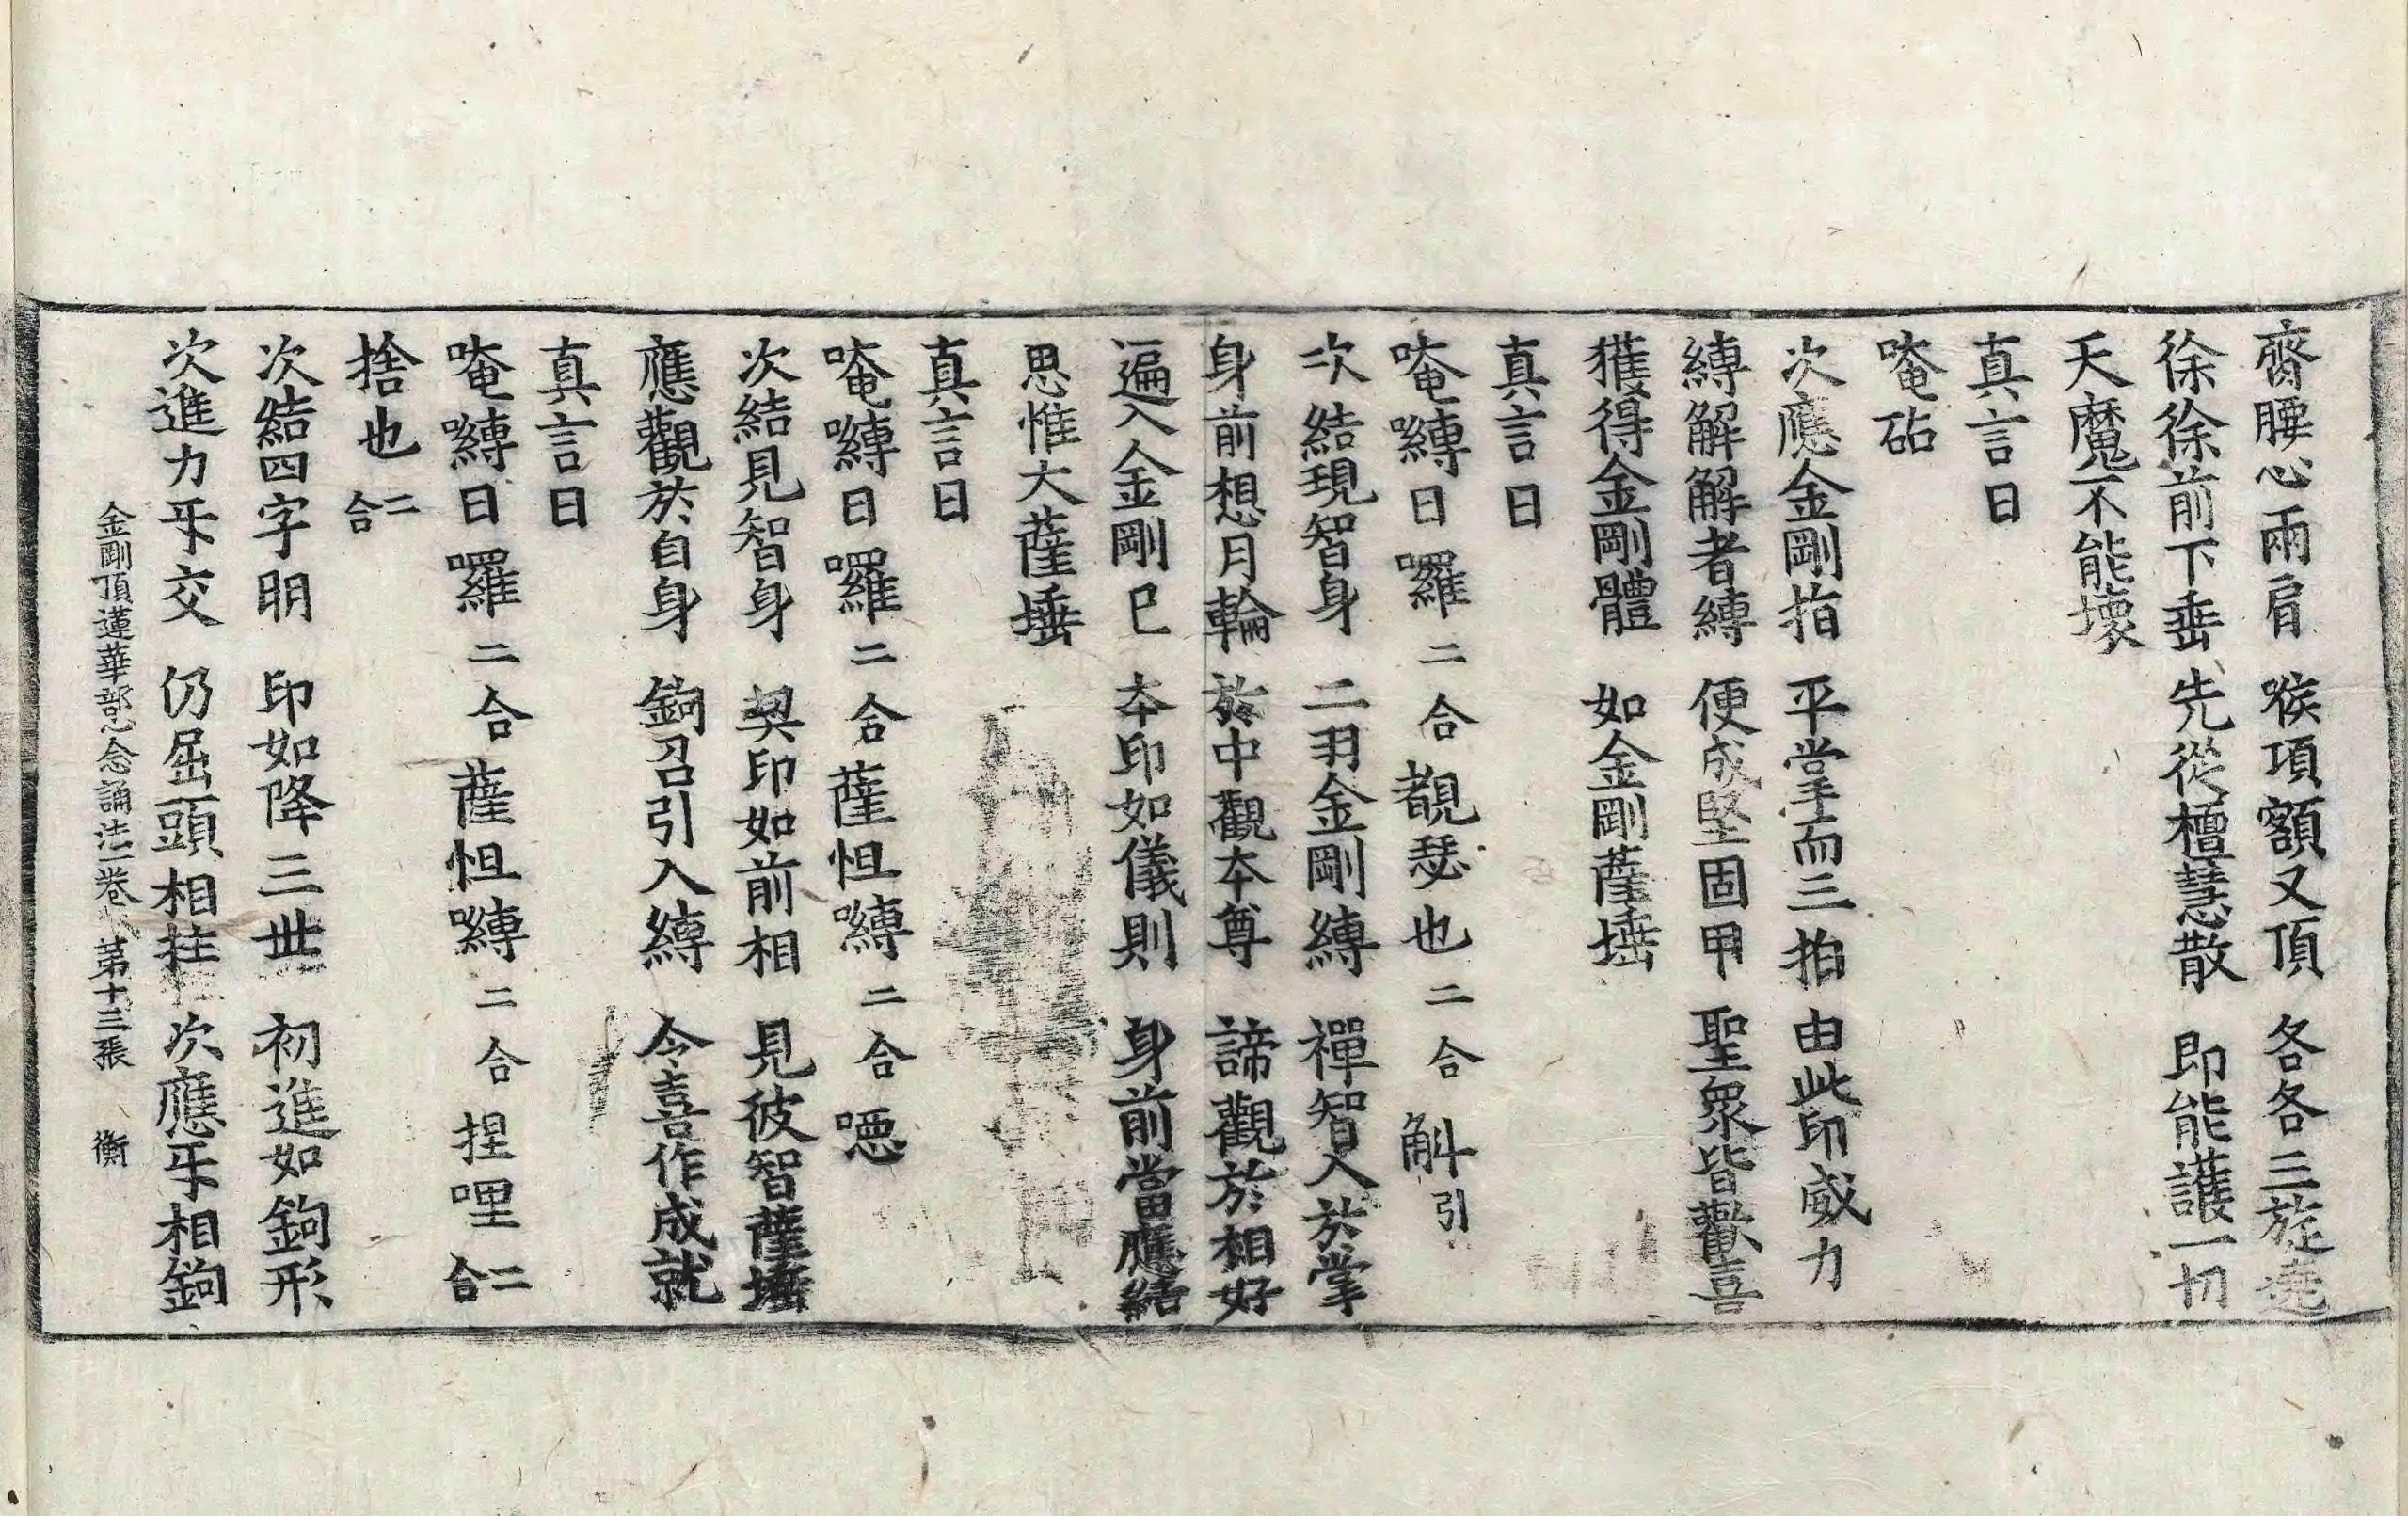 齋腰心兩肩　喉項額又頂　各各三旋遶
徐徐前下垂　先從檀慧散　即能護一切
天魔不能壞
真言曰
唵砧
次應金剛指　平掌而三拍　由此印威力
縛解解者縛　便成堅固甲　聖衆皆歡喜
獲得金剛體　如金剛薩埵
真言曰
唵嚩日囉二合覩瑟也二合斛引
次結現智身　二羽金剛縛　禪智入於掌
身前想月輪　於中觀本尊　諦觀於相好
遍入金剛已　本印如儀則　身前當應結
思惟大薩埵
真言曰
唵嚩日囉二合薩怛嚩二合噁
次結見智身　契印如前相　見彼智薩埵
應觀於自身　鉤召引入縛　令喜作成就
真言曰
唵嚩日囉二合薩怛嚩二合捏哩二合
捨也二合
次結四字明　印如降三世　初進如鉤形
次進力互交　仍屈頭相拄　次應互相鉤
金剛頂蓮華部心念誦法一卷　第十三張　衡